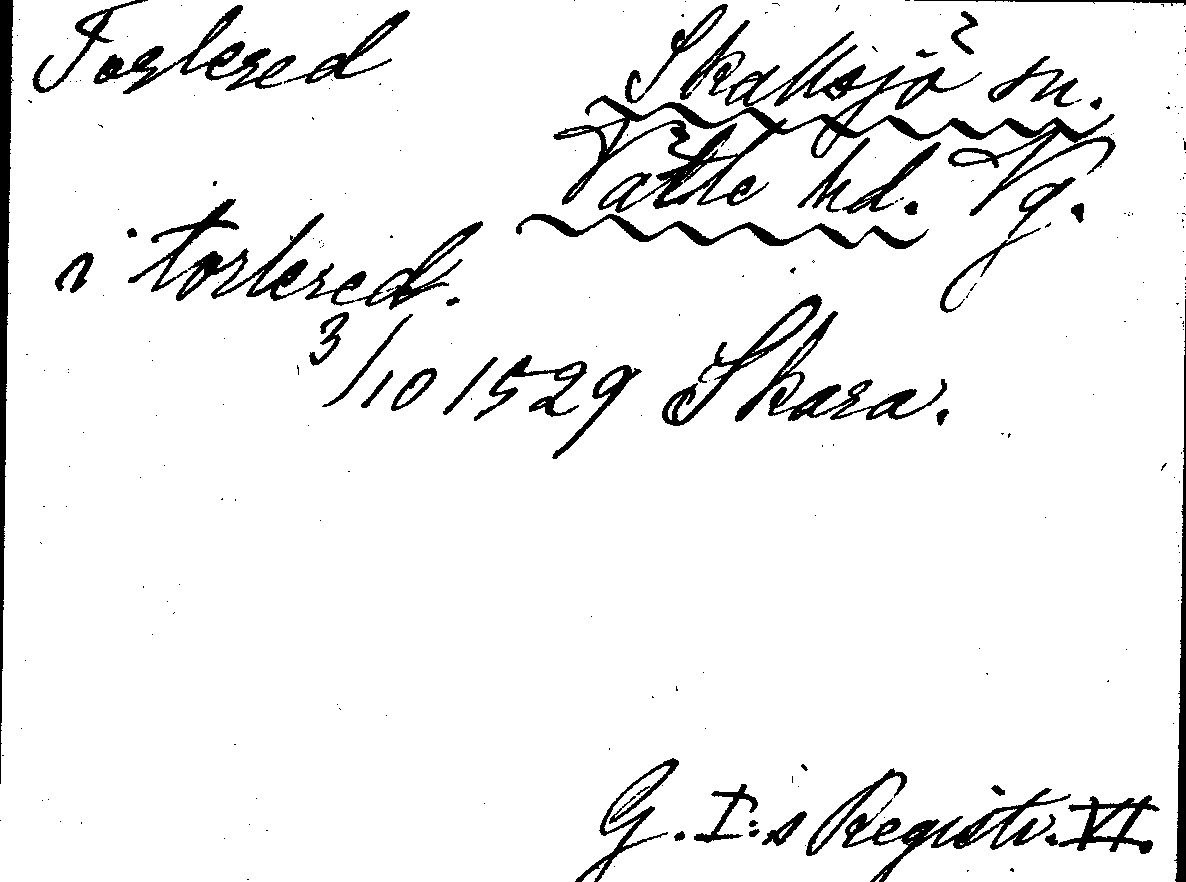 Torlered
Skallsjö sn.
Vättle hd. Vg.
i torlered.
3/10 1529 Skara.
G. I:s Registr. VI.